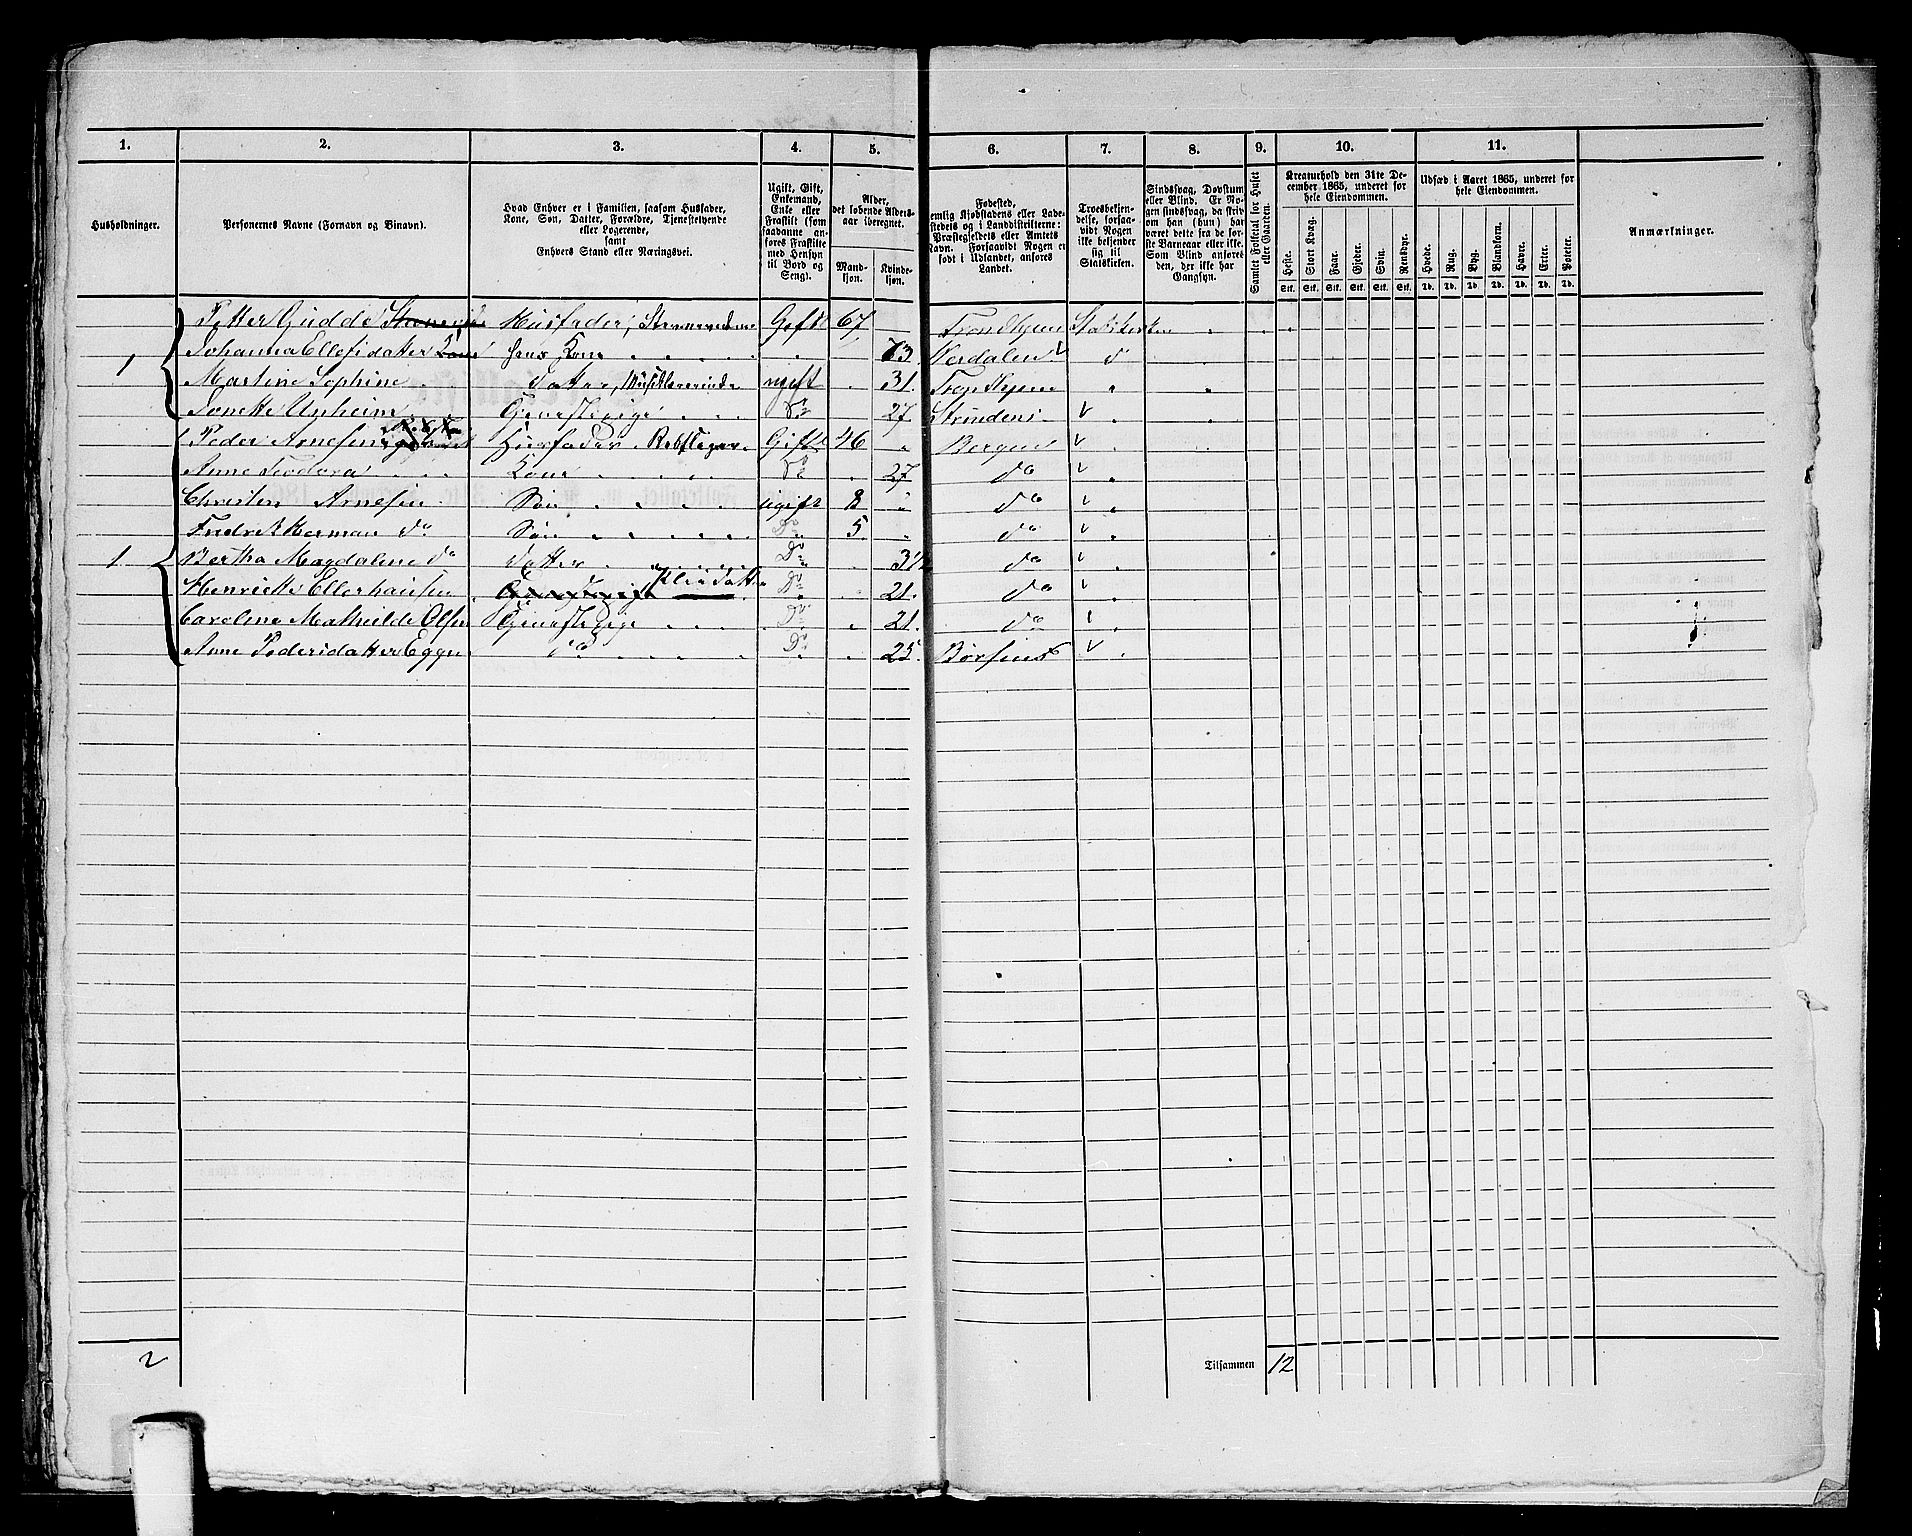 1. 2. 3. 4. 5. 6. 7. 8. 9. 10. 11.
Husholdninger.
Personernes Navne (Fornavn og Binavn).
Hvad Enhver er i Familien, saasom Husfader,
Kone, Søn, Datter, Forældre, Tjenestetyende
eller Logerende,
samt
Enhvers Stand eller Næringsvei.
Ugift, Gift,
Enkemand,
Enke eller
Fraskilt (som
saadanne an-
føres Fraskilte
med Hensyn
til Bord og
Seng).
Alder,
det løbende Alders-
aar iberegnet.
Mand-
kjøn.
Kvinde-
kjøn.
Fødested,
nemlig Kjøbstadens eller Lade-
stedets og i Landdistrikterne:
Præstegjeldets eller Amtets
Navn. Forsaavidt Nogen er
født i Udlandet, anføres
Landet.
Troesbekjen-
delse, forsaa-
vidt Nogen
ikke bekjender
sig til
Statskirken.
Sindssvag, Døvstum
eller Blind. Er No-
gen sindssvag, da skriv
om han (hun) har
været dette fra de før-
ste Barneaar eller ikke.
Som Blind ansøres
den, der ikke har
Gangsyn.
Samlet Folketal for Huset
eller Gaarden.
Kreaturhold den 31te De-
cember 1865, underet for
hele Eiendommen.
Heste. Stort Kvæg. Faar. Gjeder. Svin. Rensdyr.
Stk. Stk. Stk. Stk. Stk. Stk.
Udsæd i Aaret 1865, underet for
hele Eiendommen.
Hvede. Rug. Byg. Blandkorn. Havre. Erter. Poteter.
Td. Td. Td. Td. Td. Td. Td.
Anmærkninger.
Petter Gudde Husfader, Gift 67 Trondhjem Statskirken
1 Johanna Ellefsdatter Kone hans Kone 73 Værdalen do
Martine Sophine Datter, Musiklærerinde ugift 31. Trondhjem
Unheim Tjenestepige Do 27 Strinden
Peder Arnesen Husfader Rebslager Gift 46 Bergen
Anne Teodora Kone Do 27 do
Christen Arnesen Søn ugift 8 do
Fredrik Herman do Søn Do 5 do
1 Bertha Magdalene do Datter Do 3 do
Henrikke Ellerhausen Pleiedatter Do 21. do
Caroline Mathilde Olsen Tjenestepige Do 21. do
Anne Pedersdatter Eggen do Do 25. Børsen
2
Tilsammen 12